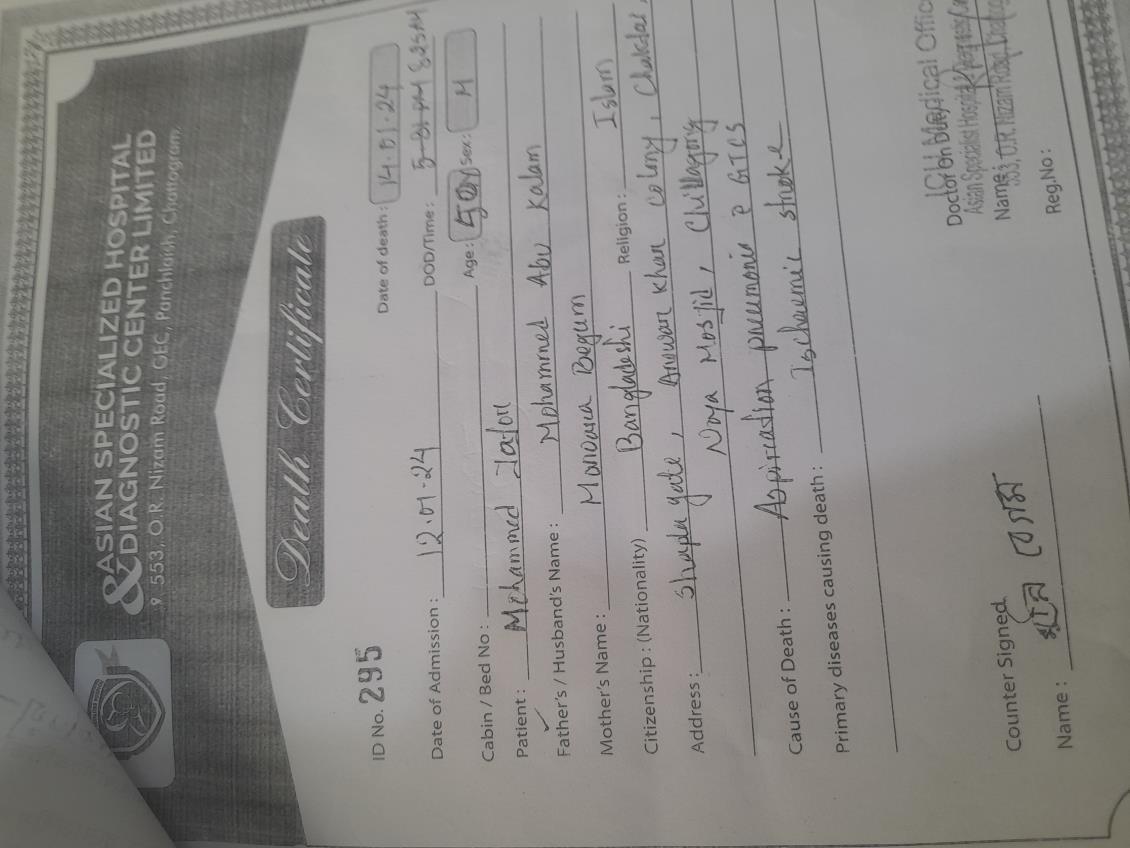 ASIAN SPECIALIZED HOSPITAL
& DIAGNOSTIC CENTER LIMITED
553, O.R. Nizam Road, GEC, Panchlaish, Chattogram.
Death Certificate
ID No. 295
Date of death : 14.01.24
Date of Admission : 12.01.24 DOD/Time :
Cabin / Bed No : Age : Sex : M
Patient : Mohammed
Father's / Husband's Name : Mohammed Abu Kalam
Mother's Name : Begum
Citizenship : (Nationality) Bangladeshi Religion : Islam
Address : Khan colony,
Noya Mosjid, Chittagong
Cause of Death : Aspiration pneumonia c̄ GTCS
Primary diseases causing death : Ischaemic stroke
Counter Signed
Name :
ICU Medical
Doctor on Duty
Asian Specialist Hospital
Name :
553, O.R. Nizam Road,
Reg.No :